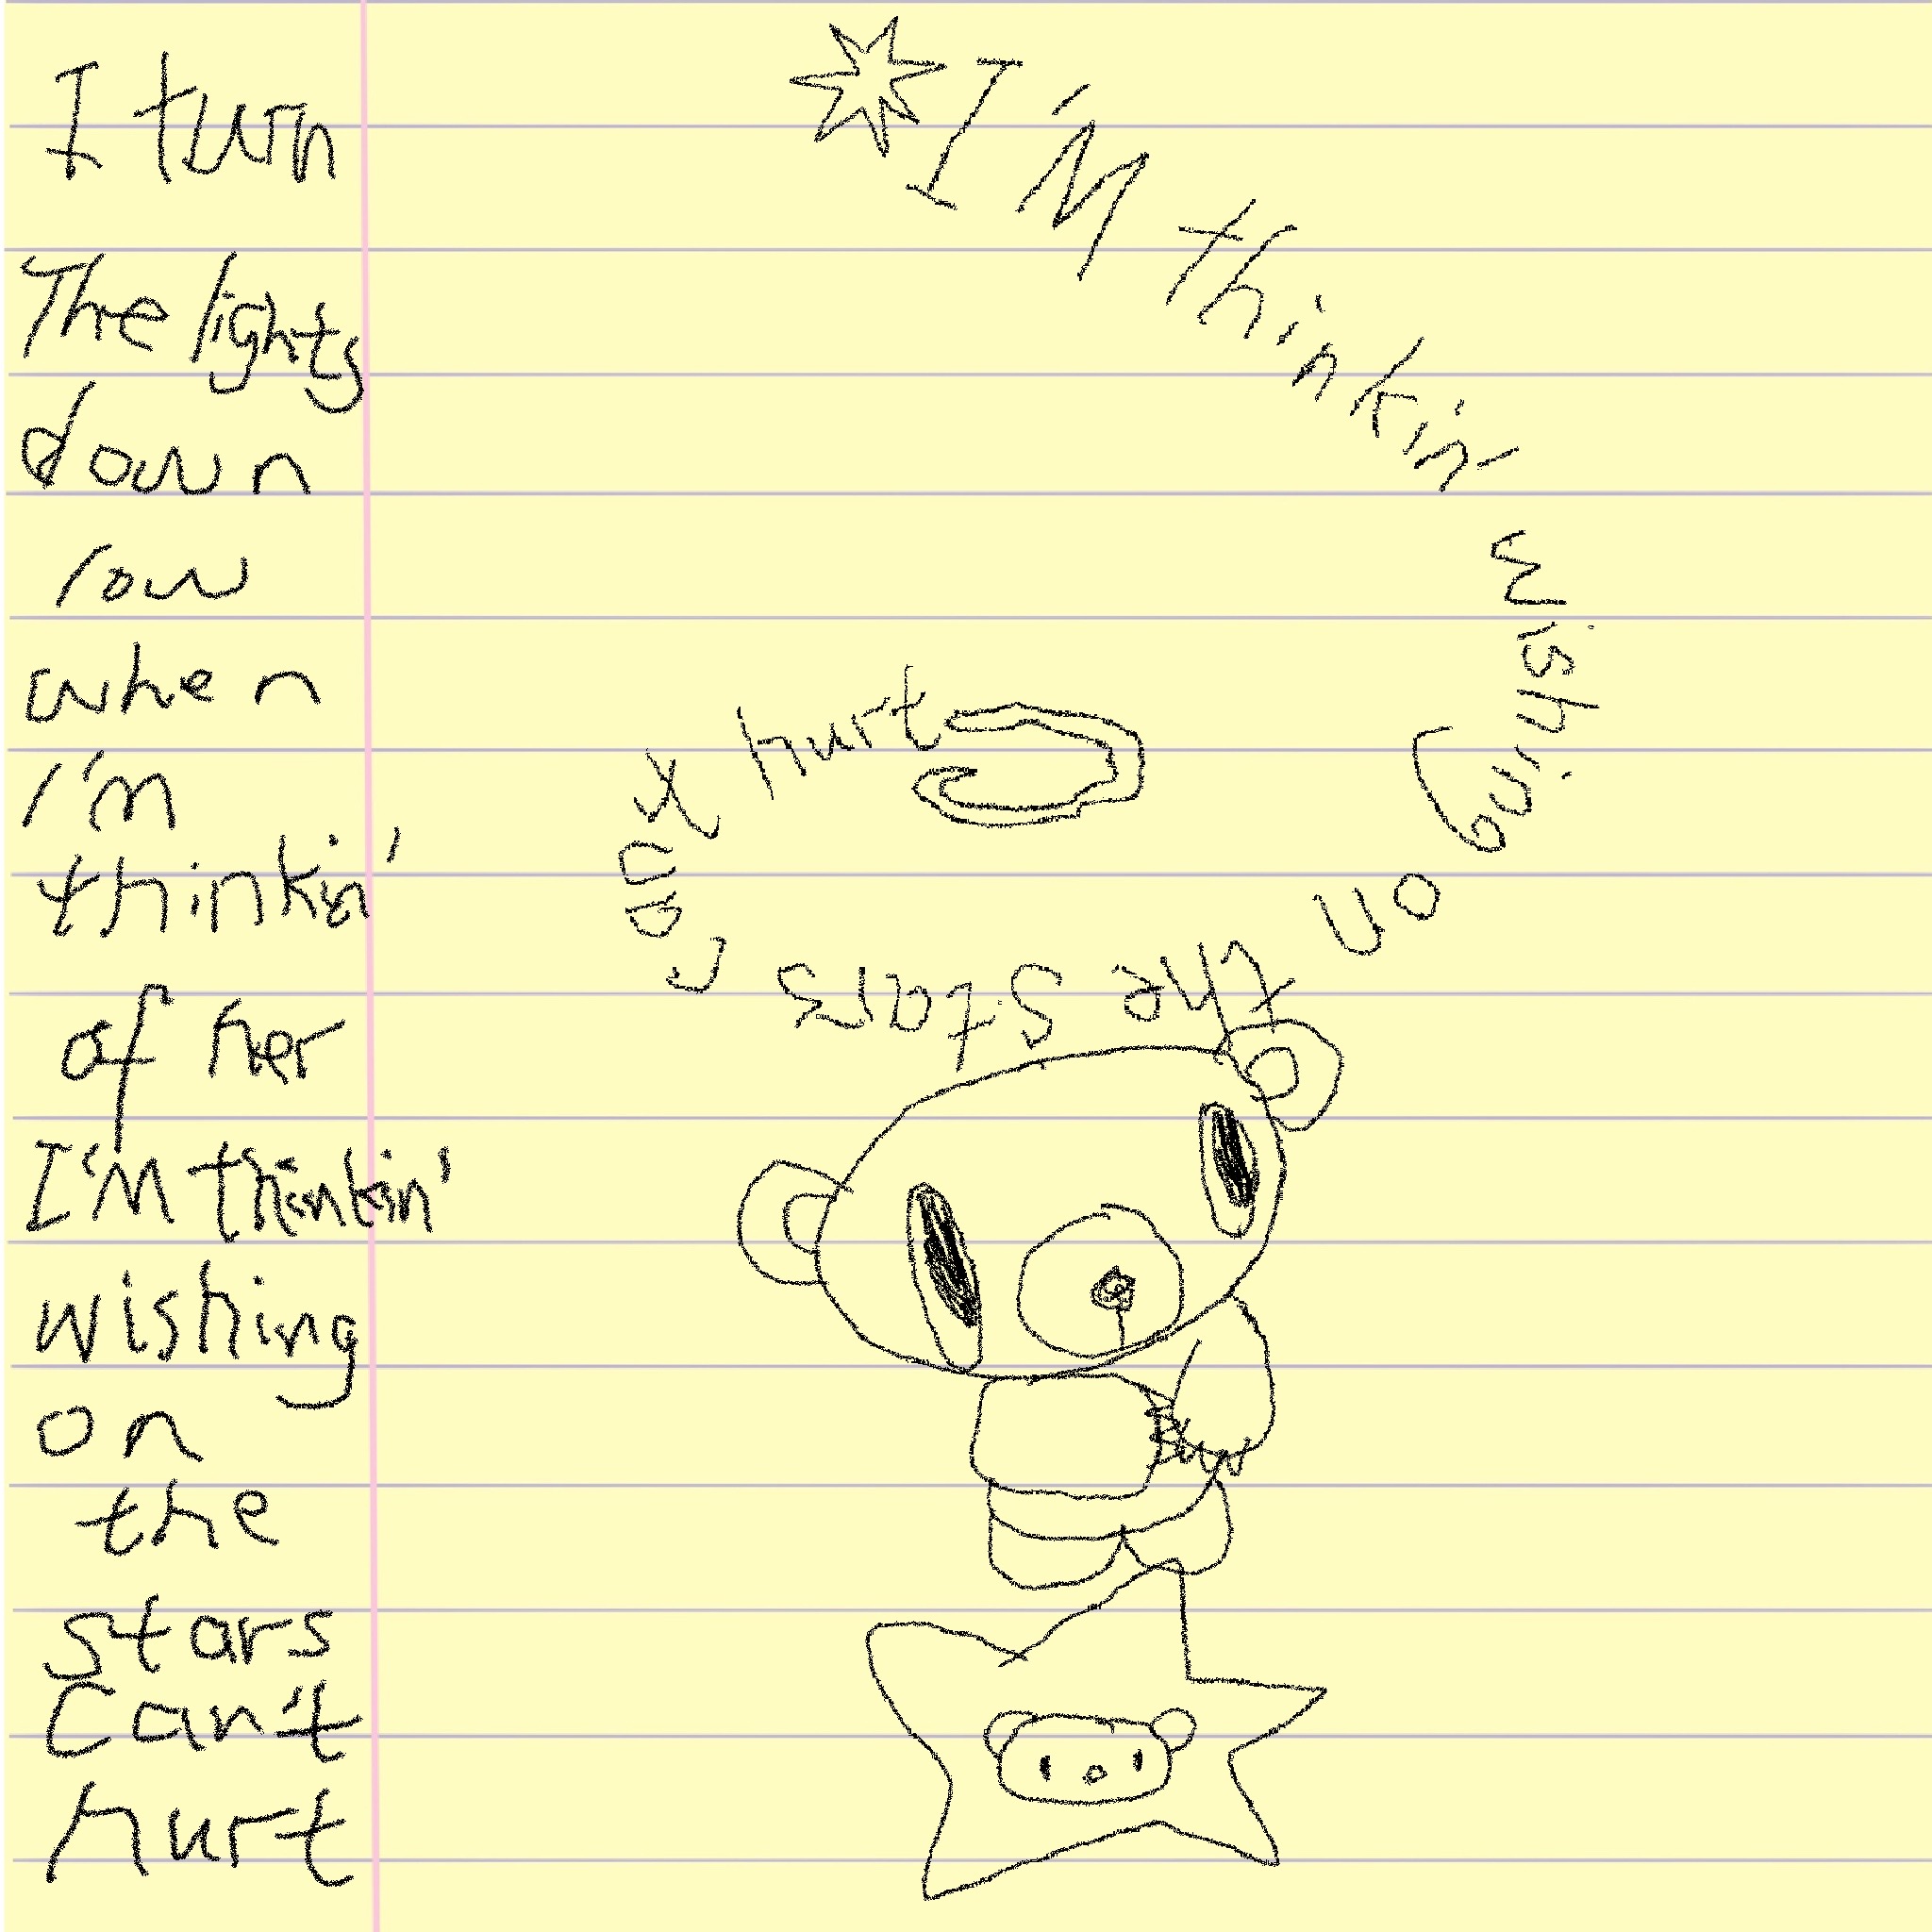 I turn
The lights
down
low
when
I'm
thinkin'
of her
I'M thinkin'
wishing
on
the
stars
Can't
hurt
I'M thinkin' wishing on the stars can't hurt